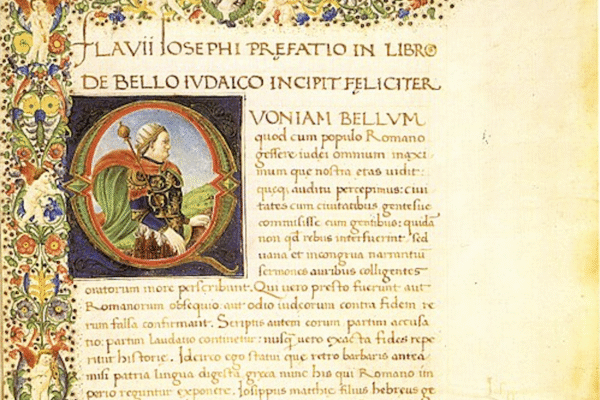 FLAVII IOSEPHI PREFATIO IN LIBRO
DE BELLO IVDAICO INCIPIT FELICITER
QVONIAM BELLVM
quod cum populo Romano
gessere iudei omnium maxi
mum que nostra etas uidit:
queq; auditu percepimus: ciui
tates cum ciuitatibus gentesue
commisisse cum gentibus: quidā
non qd rebus interfuerint, sed
uana et incongrua narrantiū
sermones auribus colligentes
oratorum more perscribunt. Qui uero presto fuerunt aut
Romanorum obsequio: aut odio iudeorum contra fidem re
rum falsa confirmant. Scriptis autem eorum partim accusa
tio: partim laudatio continetur: nusq̄ uero exacta fides repe
ritur historie. Idcirco ego statui que retro barbaris antea
misi patria lingua digesta, greca nunc his qui Romano im
perio reguntur exponere. Iosippus matthie filius hebreus ge